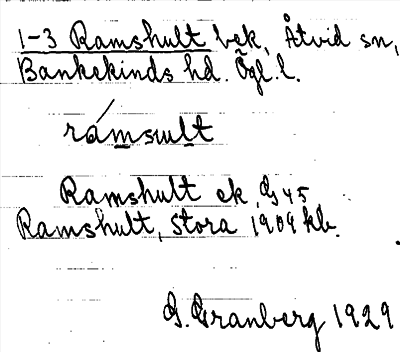 1-3 Ramshult bek, Åtvid sn,
Bankekinds hd. Ögl. l.
rámsult
Ramshult ek G 45
Ramshult, Stora 1909 kb.
G. Granberg 1929